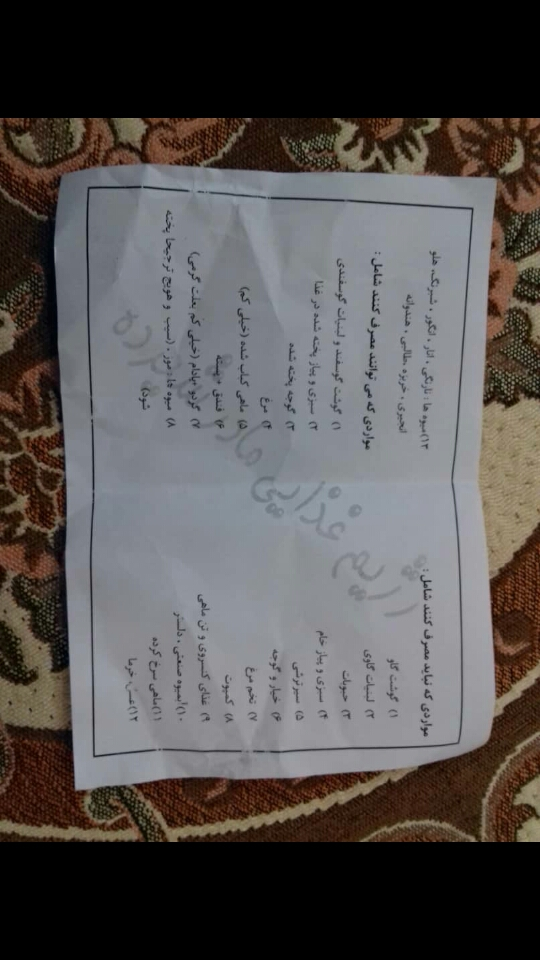 مواردی که نباید مصرف کنند شامل :
۱) گوشت گاو
۲) لبنیات گاوی
۳) حبوبات
۴) سبزی و پیاز خام
۵) سیرترشی
۶) خیار و گوجه
۷) تخم مرغ
۸) کمپوت
۹) غذای کنسروی و تن ماهی
۱۰) آبمیوه صنعتی ، دلستر
۱۱) ماهی سرخ کرده
۱۲) عسل، خرما
۱۳) میوه ها : نارنگی ، انار ، انگور ، شبرنگ، هلو
انجیری ، خربزه طالبی ، هندوانه
مواردی که می توانند مصرف کنند شامل :
۱) گوشت گوسفند و لبنیات گوسفندی
۲) سبزی و پیاز پخته شده در غذا
۳) گوجه پخته شده
۴) مرغ
۵) ماهی کباب شده (خیلی کم)
۶) فندق پسته
۷) گردو بادام (خیلی کم بعلت گرمی)
۸) میوه ها: موز ، (سیب و هویج ترجیحا پخته
شود)
رژیم غذایی مادر